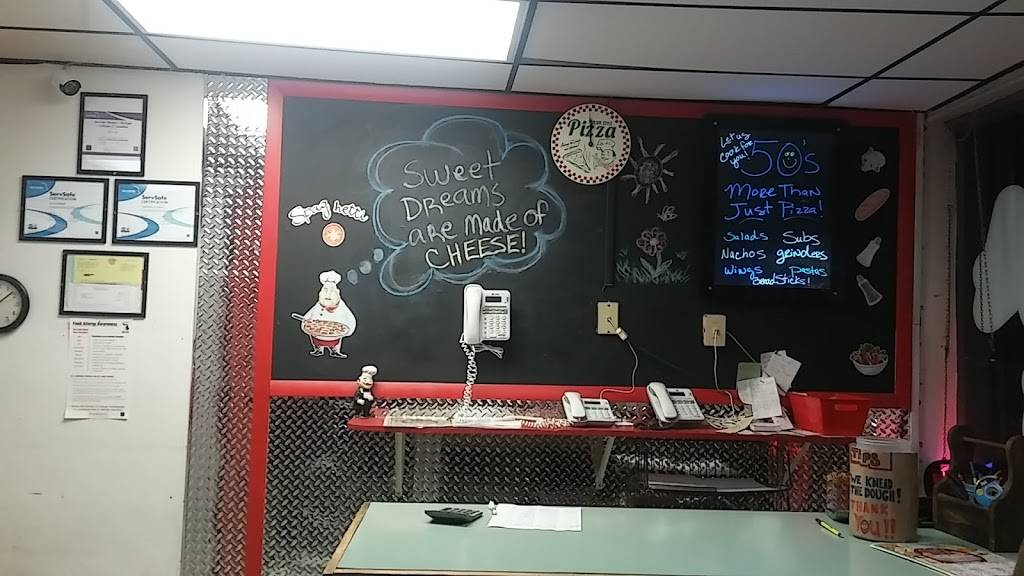 ServSafe
CERTIFICATION
ServSafe
CERTIFICATION
Food Allergy Awareness
Sweet
DREAMS
are Made of
CHEESE!
Pizza
Let us
Cook for
you!
50's
More Than
Just Pizza!
Salads Subs
Nachos grinders
Wings Pastas
BreadSticks!
TIPS
WE KNEAD
THE DOUGH!
THANK
YOU!!